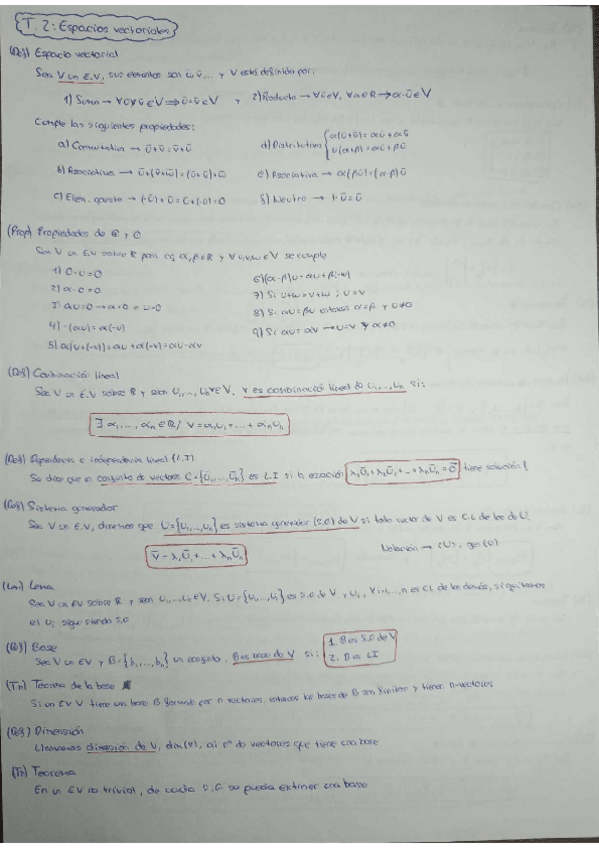 T.2: Espacios vectoriales
(Def) Espacio vectorial
Sea V un E.V, sus elementos son ū, v̄... y V está definido por:
1) Suma → ∀ū,v̄ ∈ V ⇒ ū+v̄ ∈ V y 2) Producto → ∀ū∈V, ∀α∈R → α·ū∈V
Cumple las siguientes propiedades:
a) Conmutativa → ū+v̄ = v̄+ū
d) Distributiva { α(ū+v̄) = αū+αv̄
ū(α+β) = αū+βū
b) Asociativa → ū+(v̄+w̄) = (ū+v̄)+w̄
e) Asociativa → α(βū) = (α·β)ū
c) Elem. opuesto → (-ū)+ū = ū+(-ū) = 0
f) Neutro → 1·ū = ū
(Prop) Propiedades de
Sea V un E.V sobre R para α, β ∈ R y ∀ u,v,w ∈ V se cumple
1) 0·u = 0
2) α·0 = 0
3) αu = 0 → α = 0 o u = 0
4) -(αu) = α(-u)
5) α(u+(-v)) = αu+α(-v) = αu-αv
6) (α-β)u = αu+β(-u)
7) Si u+w = v+w ; u = v
8) Si αu = βu entonces α = β y u≠0
9) Si αu = αv → u = v y α≠0
(Def) Combinación lineal
Sea V un E.V sobre R y sean u₁,..., uₙ, v ∈ V. v es combinación lineal de u₁,..., uₙ si:
∃ α₁,..., αₙ ∈ R / v = α₁u₁ + ... + αₙuₙ
(Def) Dependencia e independencia lineal (L.I)
Se dice que un conjunto de vectores C = {ū₁,..., ūₙ} es L.I si la ecuación λ₁ū₁+λ₂ū₂+...+λₙūₙ = 0̄ tiene solución !
(Def) Sistema generador
Sea V un E.V, diremos que U = {u₁,..., uₙ} es sistema generador (S.G) de V si todo vector de V es C.L de los de U.
v̄ = λ₁ū₁ + ... + λₙūₙ
Notación → <U>, gen(U)
(Lem) Lema
Sea V un EV sobre R y sean u₁,..., uₙ ∈ V. Si U = {u₁,..., uₙ} es S.G de V y uᵢ, ∀ i=1,...,n es CL de los demás, si quitamos
el uᵢ sigue siendo S.G
(Def) Base
Sea V un EV y B = {b₁,..., bₙ} un conjunto, B es base de V si:
1. B es S.G de V
2. B es L.I
(Tm) Teorema de la base
Si un EV V tiene una base B formada por n vectores, entonces las bases de B son finitas y tienen n-vectores
(Def) Dimensión
Llamamos dimensión de V, dim(V), al nº de vectores que tiene una base
(Tm) Teorema
En un EV no trivial, de cada S.G se puede extraer una base